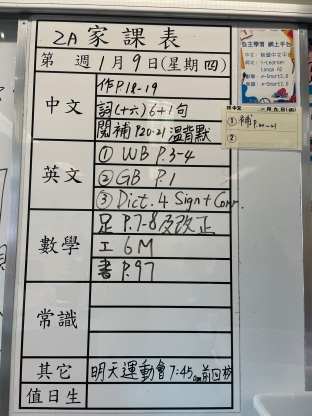 2A 家課表
第 週 1月9日(星期四)
中文
作P.18-19
詞(十六)6+1句
閱補P.20-21 溫背默
英文
① WB P.3-4
② GB P.1
③ Dict. 4 Sign + Corr.
數學
足 P.7-8及改正
工 6M
書 P.97
常識
其它
明天運動會 7:45am前回校
值日生
自主學習 網上平台
① 補 P.20-21
②